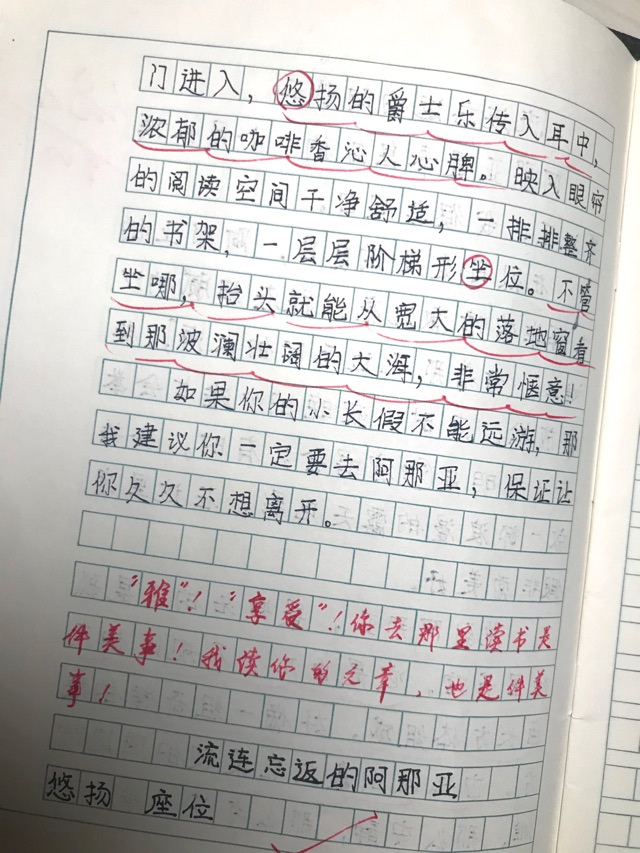 门进入，悠扬的爵士乐传入耳中，
浓郁的咖啡香沁人心脾。映入眼帘
的阅读空间干净舒适，一排排整齐
的书架，一层层阶梯形坐位。不管
坐哪，抬头就能从宽大的落地窗看
到那波澜壮阔的大海，非常惬意！
如果你的小长假不能远游，那
我建议你一定要去阿那亚，保证让
你久久不想离开。
“雅”！“享受”！你去那里读书是
件美事！我读你的文章，也是件美
事！
流连忘返的阿那亚
悠扬 座位